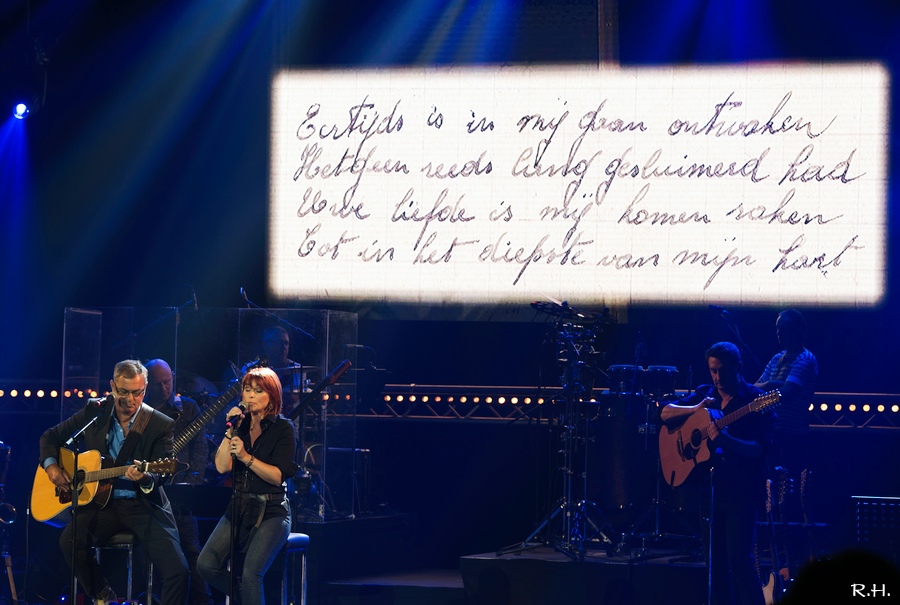 Eertijds is in mij gaan ontwaken
Hetgeen reeds lang gesluimerd had
Uwe liefde is mij komen raken
Tot in het diepste van mijn hart
R.H.